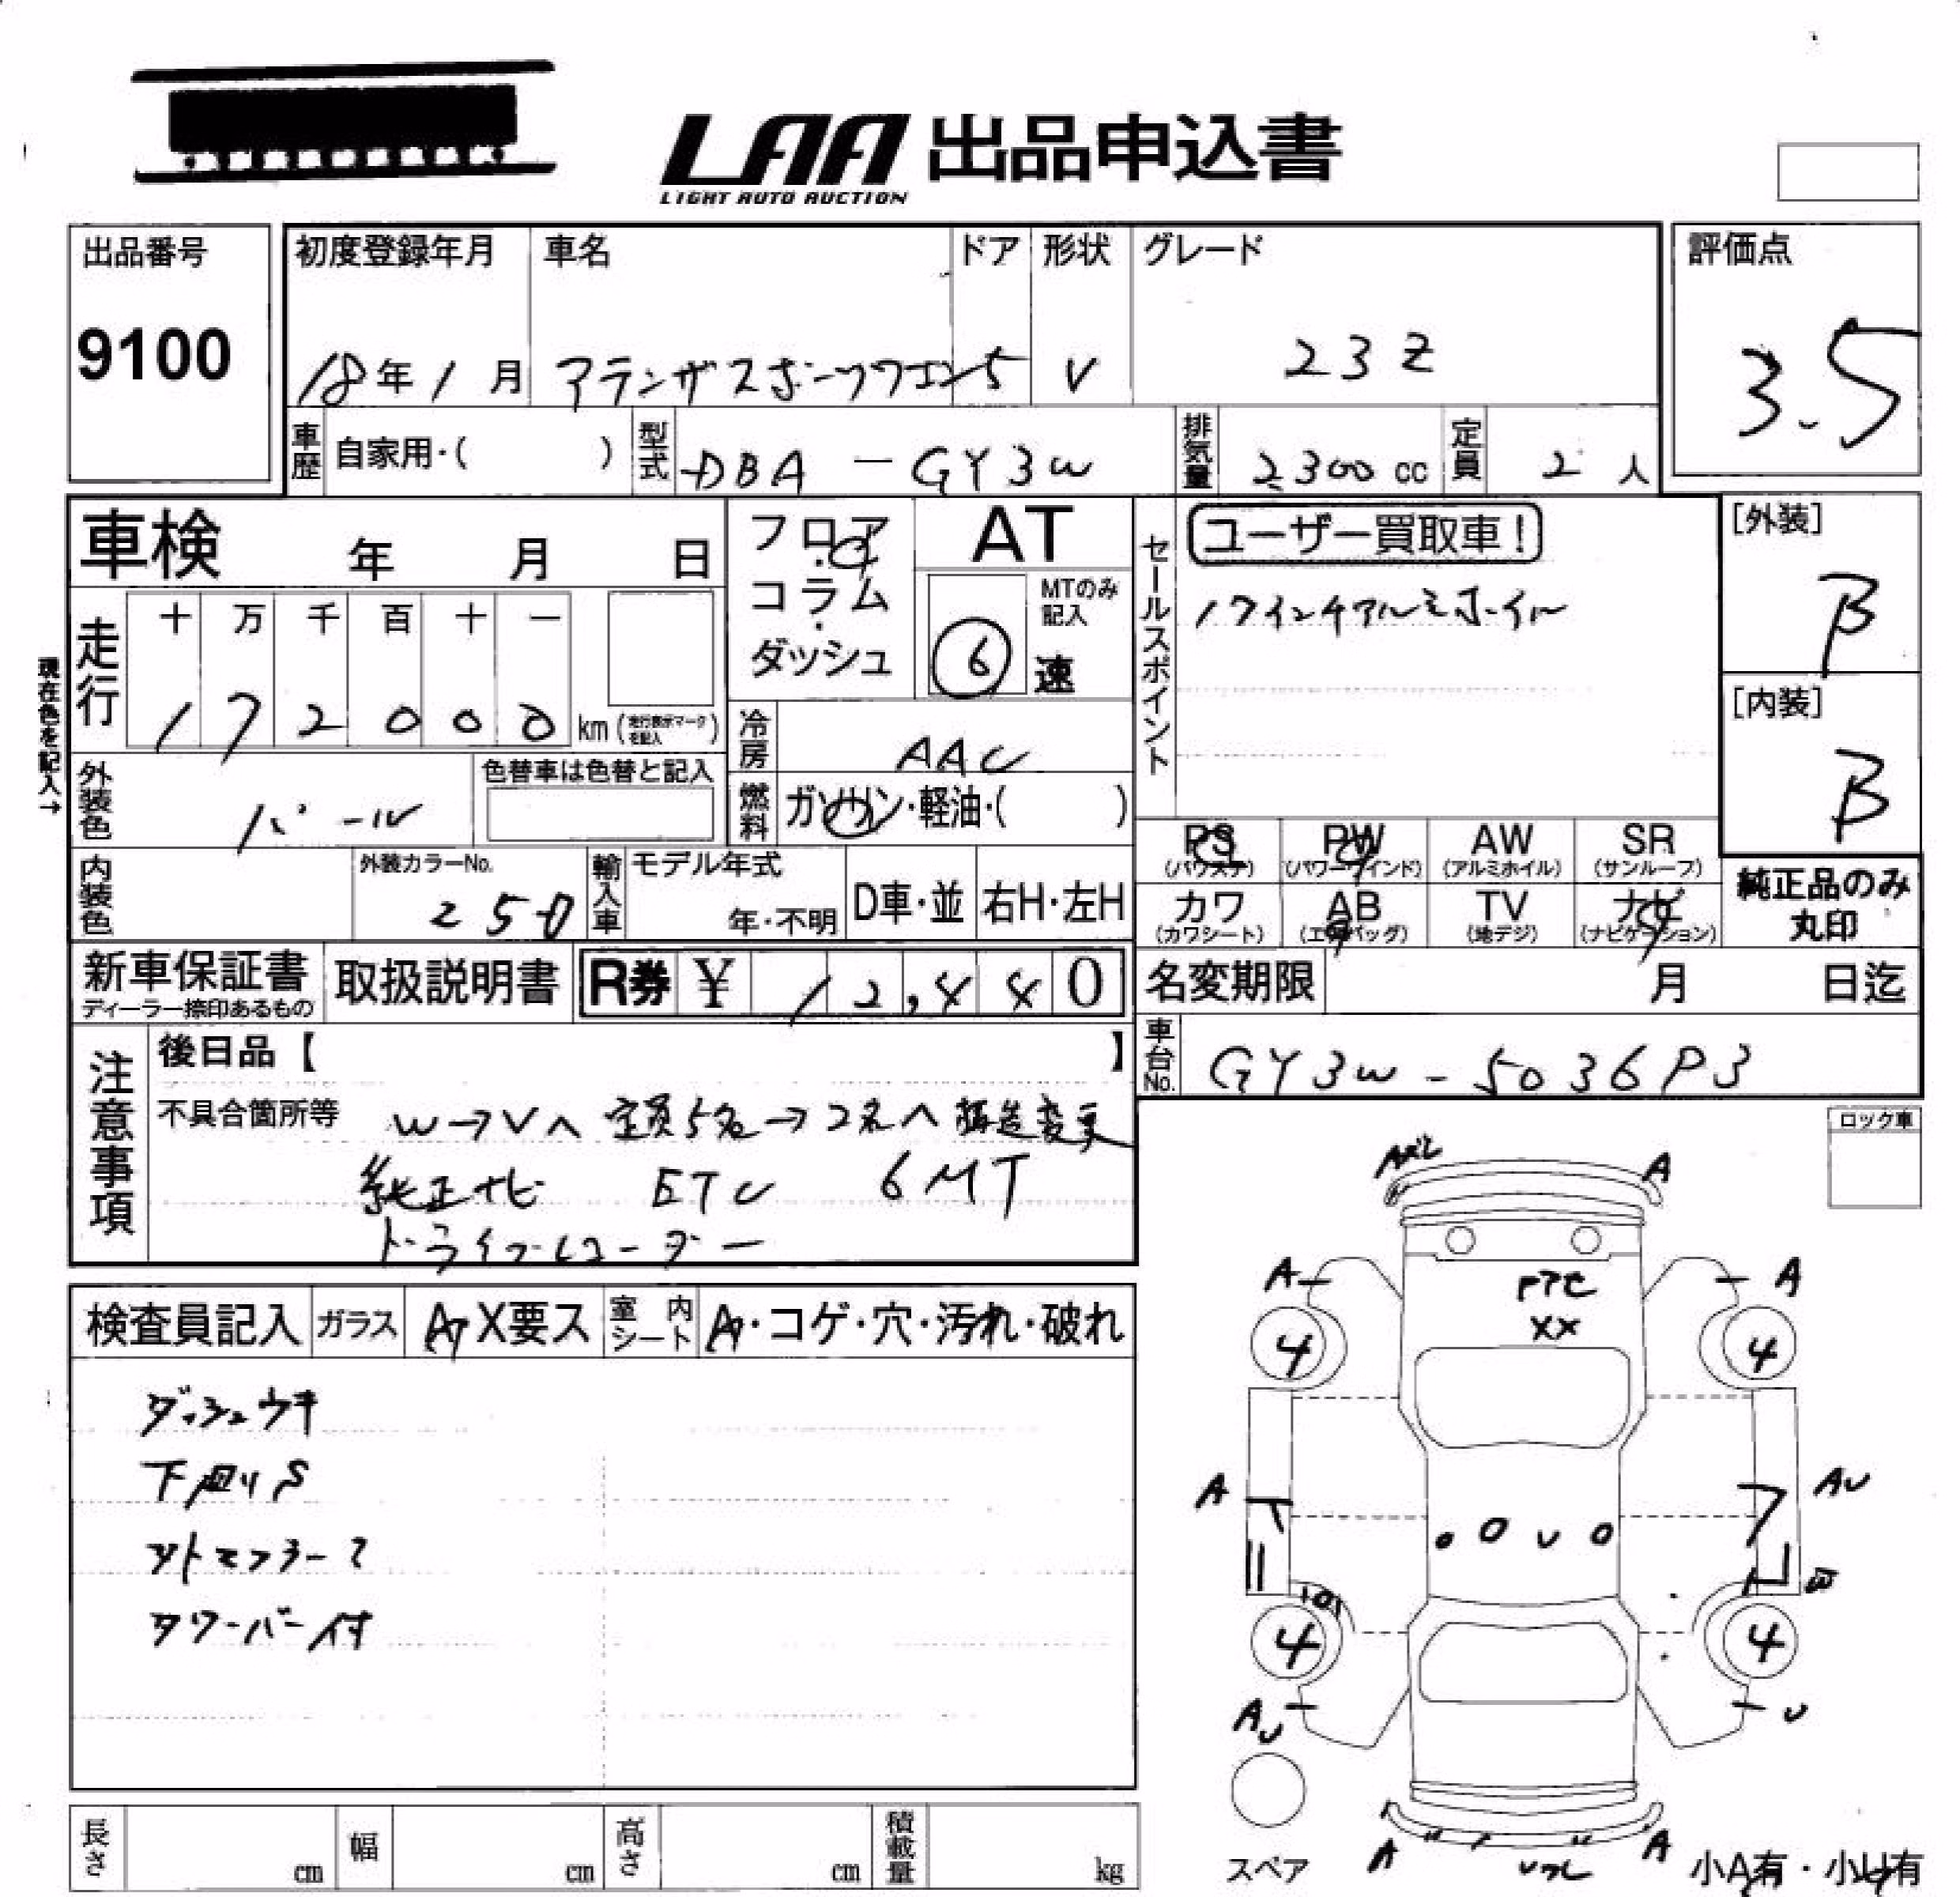 LAA 出品申込書
LIGHT AUTO AUCTION
出品番号
9100
初度登録年月
18年1月
車名
アテンザスポーツワゴン
ドア
5
形状
V
グレード
23Z
評価点
3.5
車歴
自家用・( )
型式
DBA-GY3W
排気量
2300cc
定員
2人
車検 年 月 日
現在色を記入→
走行
十 万 千 百 十 一
1 7 2 0 0 0 km (走行表示マークを記入)
フロア
・
コラム
・
ダッシュ
AT
MTのみ記入
6 速
冷房
AAC
燃料
ガソリン・軽油・( )
セールスポイント
ユーザー買取車!
17インチアルミホイル
[外装]
B
[内装]
B
外装色
パール
色替車は色替と記入
内装色
外装カラーNo.
25D
輸入車
モデル年式
年・不明
D車・並
右H・左H
PS
(パワステ)
PW
(パワーウインド)
AW
(アルミホイル)
SR
(サンルーフ)
カワ
(カワシート)
AB
(エアバッグ)
TV
(地デジ)
ナビ
(ナビゲーション)
純正品のみ
丸印
新車保証書
ディーラー捺印あるもの
取扱説明書
R券 ¥ 12,440
名変期限 月 日迄
車台No.
注意事項
後日品【 】
不具合箇所等
W→Vへ 定員5名→2名へ 構造変更
純正ナビ ETC 6MT
ドライブレコーダー
ロック車
検査員記入
ガラス
A・X要ス
室内シート
A・コゲ・穴・汚れ・破れ
ダッシュウキ
下回りS
タワーバー付
A
A
A
XX
4
4
A
AU
W
4
4
AU
U
スペア
A
A
小A有・小U有
長さ cm
幅 cm
高さ cm
積載量 kg